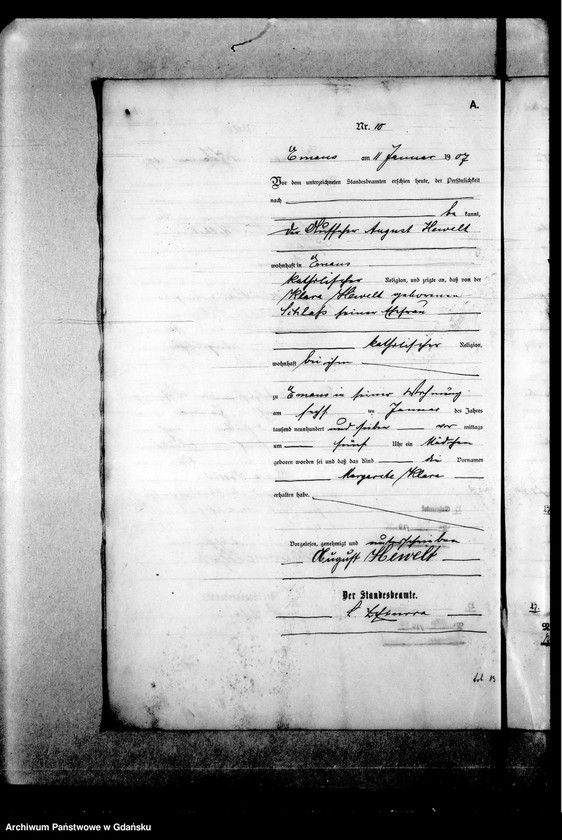 A.
Nr. 10
Emaus am 11 Januar 1907
Vor dem unterzeichneten Standesbeamten erschien heute, der Persönlichkeit
nach
be kannt,
der August Hewelt
wohnhaft in Emaus
katholischer Religion, und zeigte an, daß von der
Klara Hewelt geborenen
seiner Ehefrau
katholischer Religion,
wohnhaft bei ihm
zu Emaus in seiner Wohnung
am ten Januar des Jahres
tausend neunhundert und sieben vor mittags
um fünf Uhr ein Mädchen
geboren worden sei und daß das Kind die Vornamen
Margarete Klara
erhalten habe.
Vorgelesen, genehmigt und unterschrieben
August Hewelt
Der Standesbeamte.
Archiwum Państwowe w Gdańsku